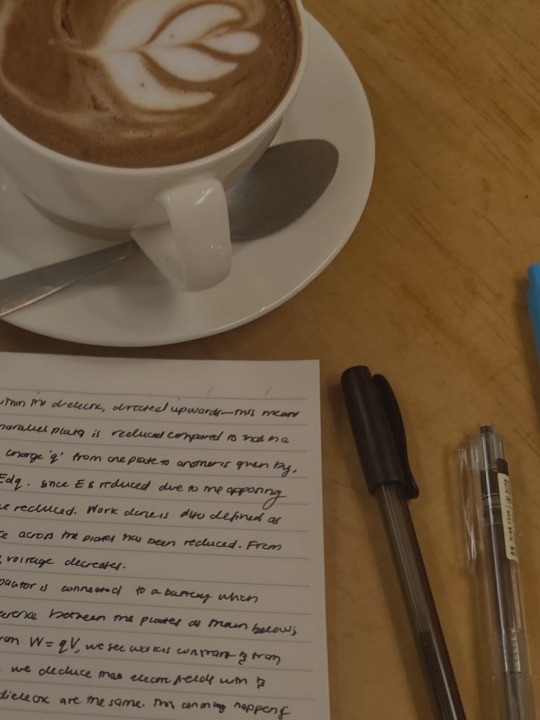 within the dielectric, directed upwards—this means
parallel plates is reduced compared to that in a
charge 'q' from one plate to another is given by,
Edq. Since E is reduced due to the opposing
be reduced. Work done is also defined as
across the plates has been reduced. From
, voltage decreases.
is connected to a battery when
between the plates as
W = qV, we see work is constant & from
, we deduce that electric fields with &
dielectric are the same. This can only happen if